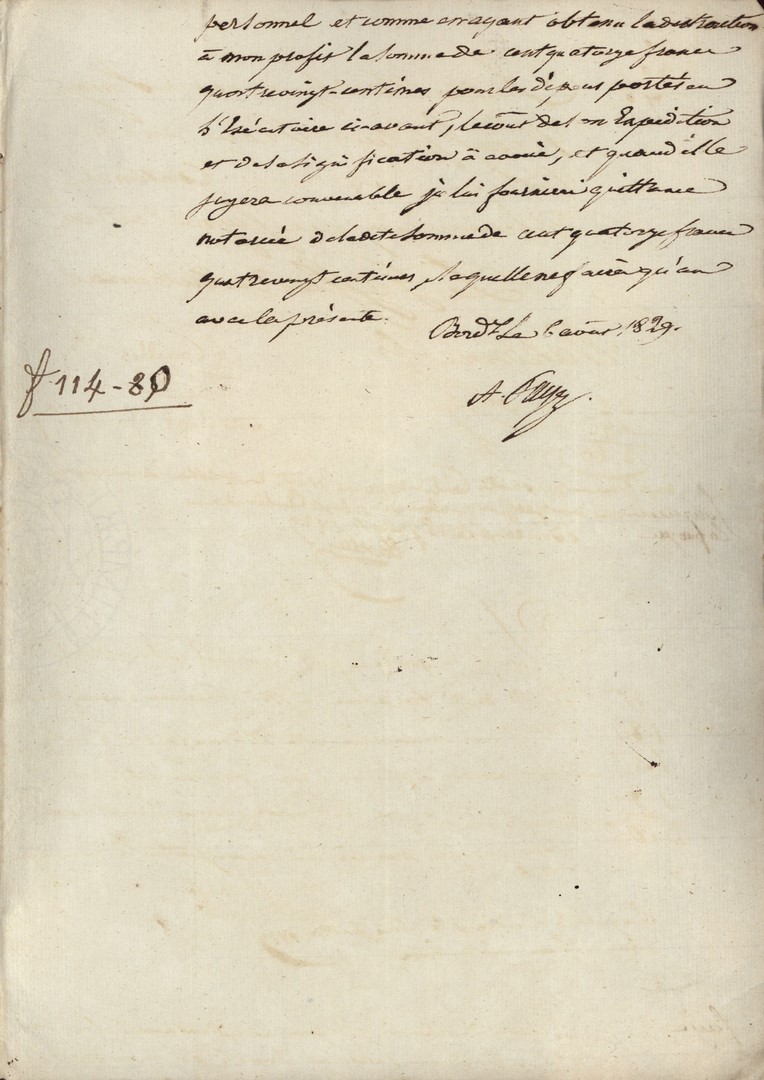 personnel et comme en ayant obtenu la distraction
à mon profit la somme de cent quatorze francs
quatrevingt-centimes pour les dépens portés en
l'Exécutoire ci-avant, le coût de son Expédition
et de la signification à avoué, et quand elle
jugera convenable je lui fournirai quittance
notariée de la dite somme de cent quatorze francs
quatrevingt centimes, laquelle ne faira qu'un
avec la présente.
Bord.x Le 6 août 1829.
f 114-80